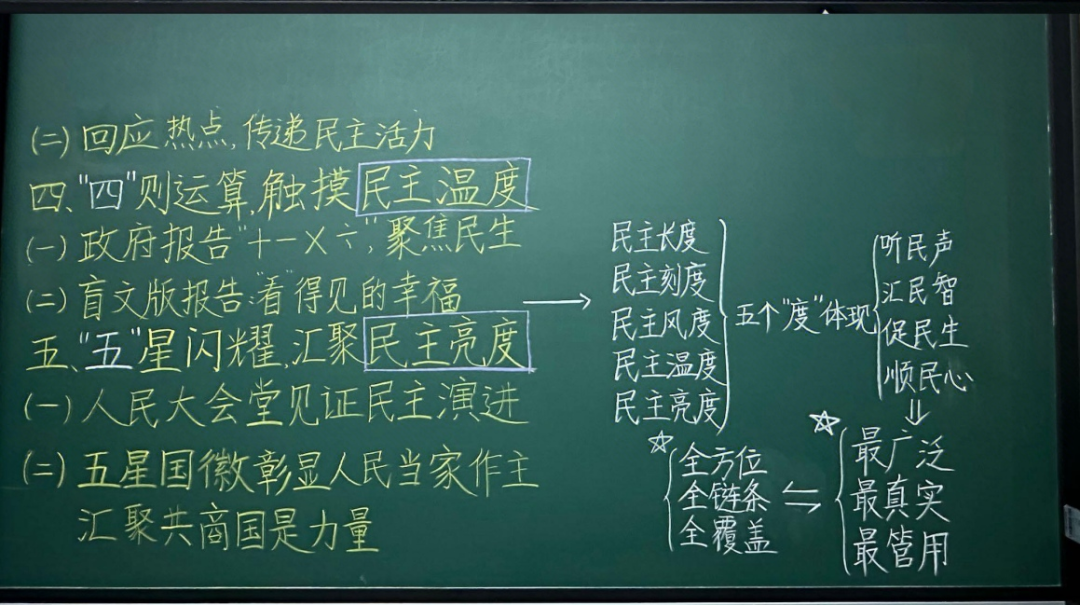 (二)回应热点,传递民主活力
四、"四"则运算,触摸民主温度
(一)政府报告"十一X÷",聚焦民生
(二)盲文版报告"看"得见的幸福
五、"五"星闪耀,汇聚民主亮度
(一)人民大会堂见证民主演进
(二)五星国徽彰显人民当家作主
汇聚共商国是力量
民主长度
民主刻度
民主风度
民主温度
民主亮度
五个"度"体现
听民声
汇民智
促民生
顺民心
全方位
全链条
全覆盖
最广泛
最真实
最管用